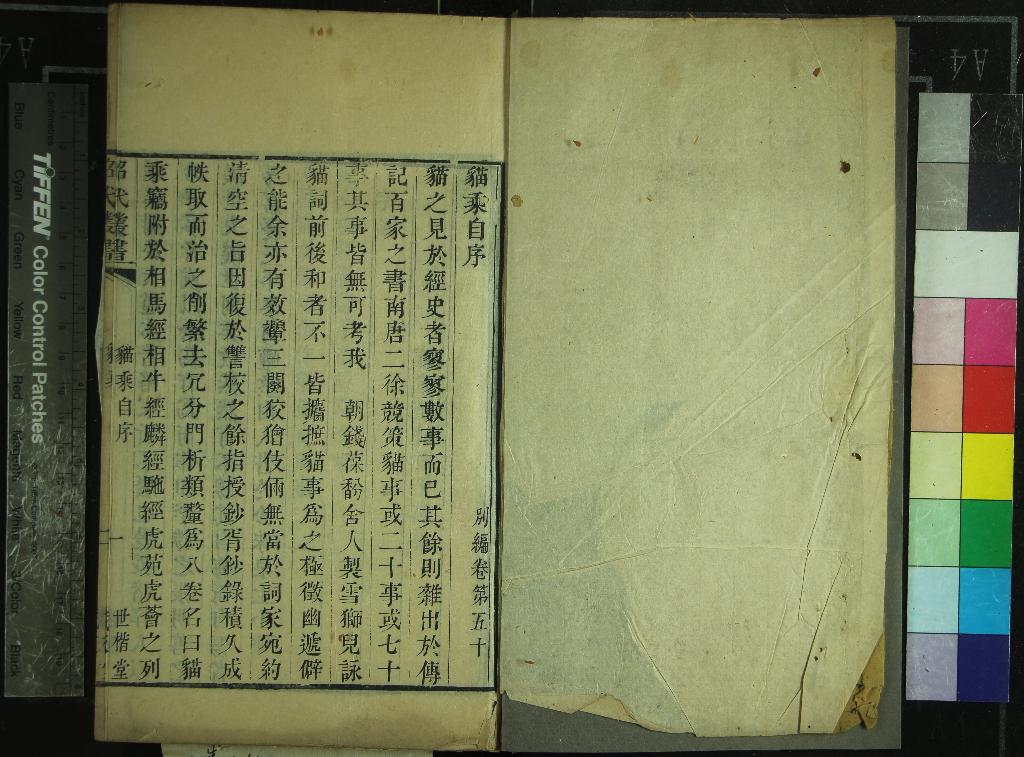 貓乘自序
別編卷第五十
貓之見於經史者寥寥數事而已其餘則雜出於傳
記百家之書南唐二徐競策貓事或二十事或七十
事其事皆無可考我 朝錢葆馚舍人製雪獅兒詠
貓詞前後和者不一皆攟摭貓事爲之極徵幽遞僻
之能余亦有效顰三闋狡獪伎倆無當於詞家宛約
清空之旨因復於讐校之餘指授鈔胥鈔錄積久成
帙取而治之削繁去冗分門析類釐爲八卷名曰貓
乘竊附於相馬經相牛經麟經駝經虎苑虎薈之列
昭代叢書
貓乘自序
一
世楷堂
TIFFEN Color Control Patches
Blue
Cyan
Green
Yellow
Red
Magenta
White
3/Color
Black
Centimetres
A4
A4